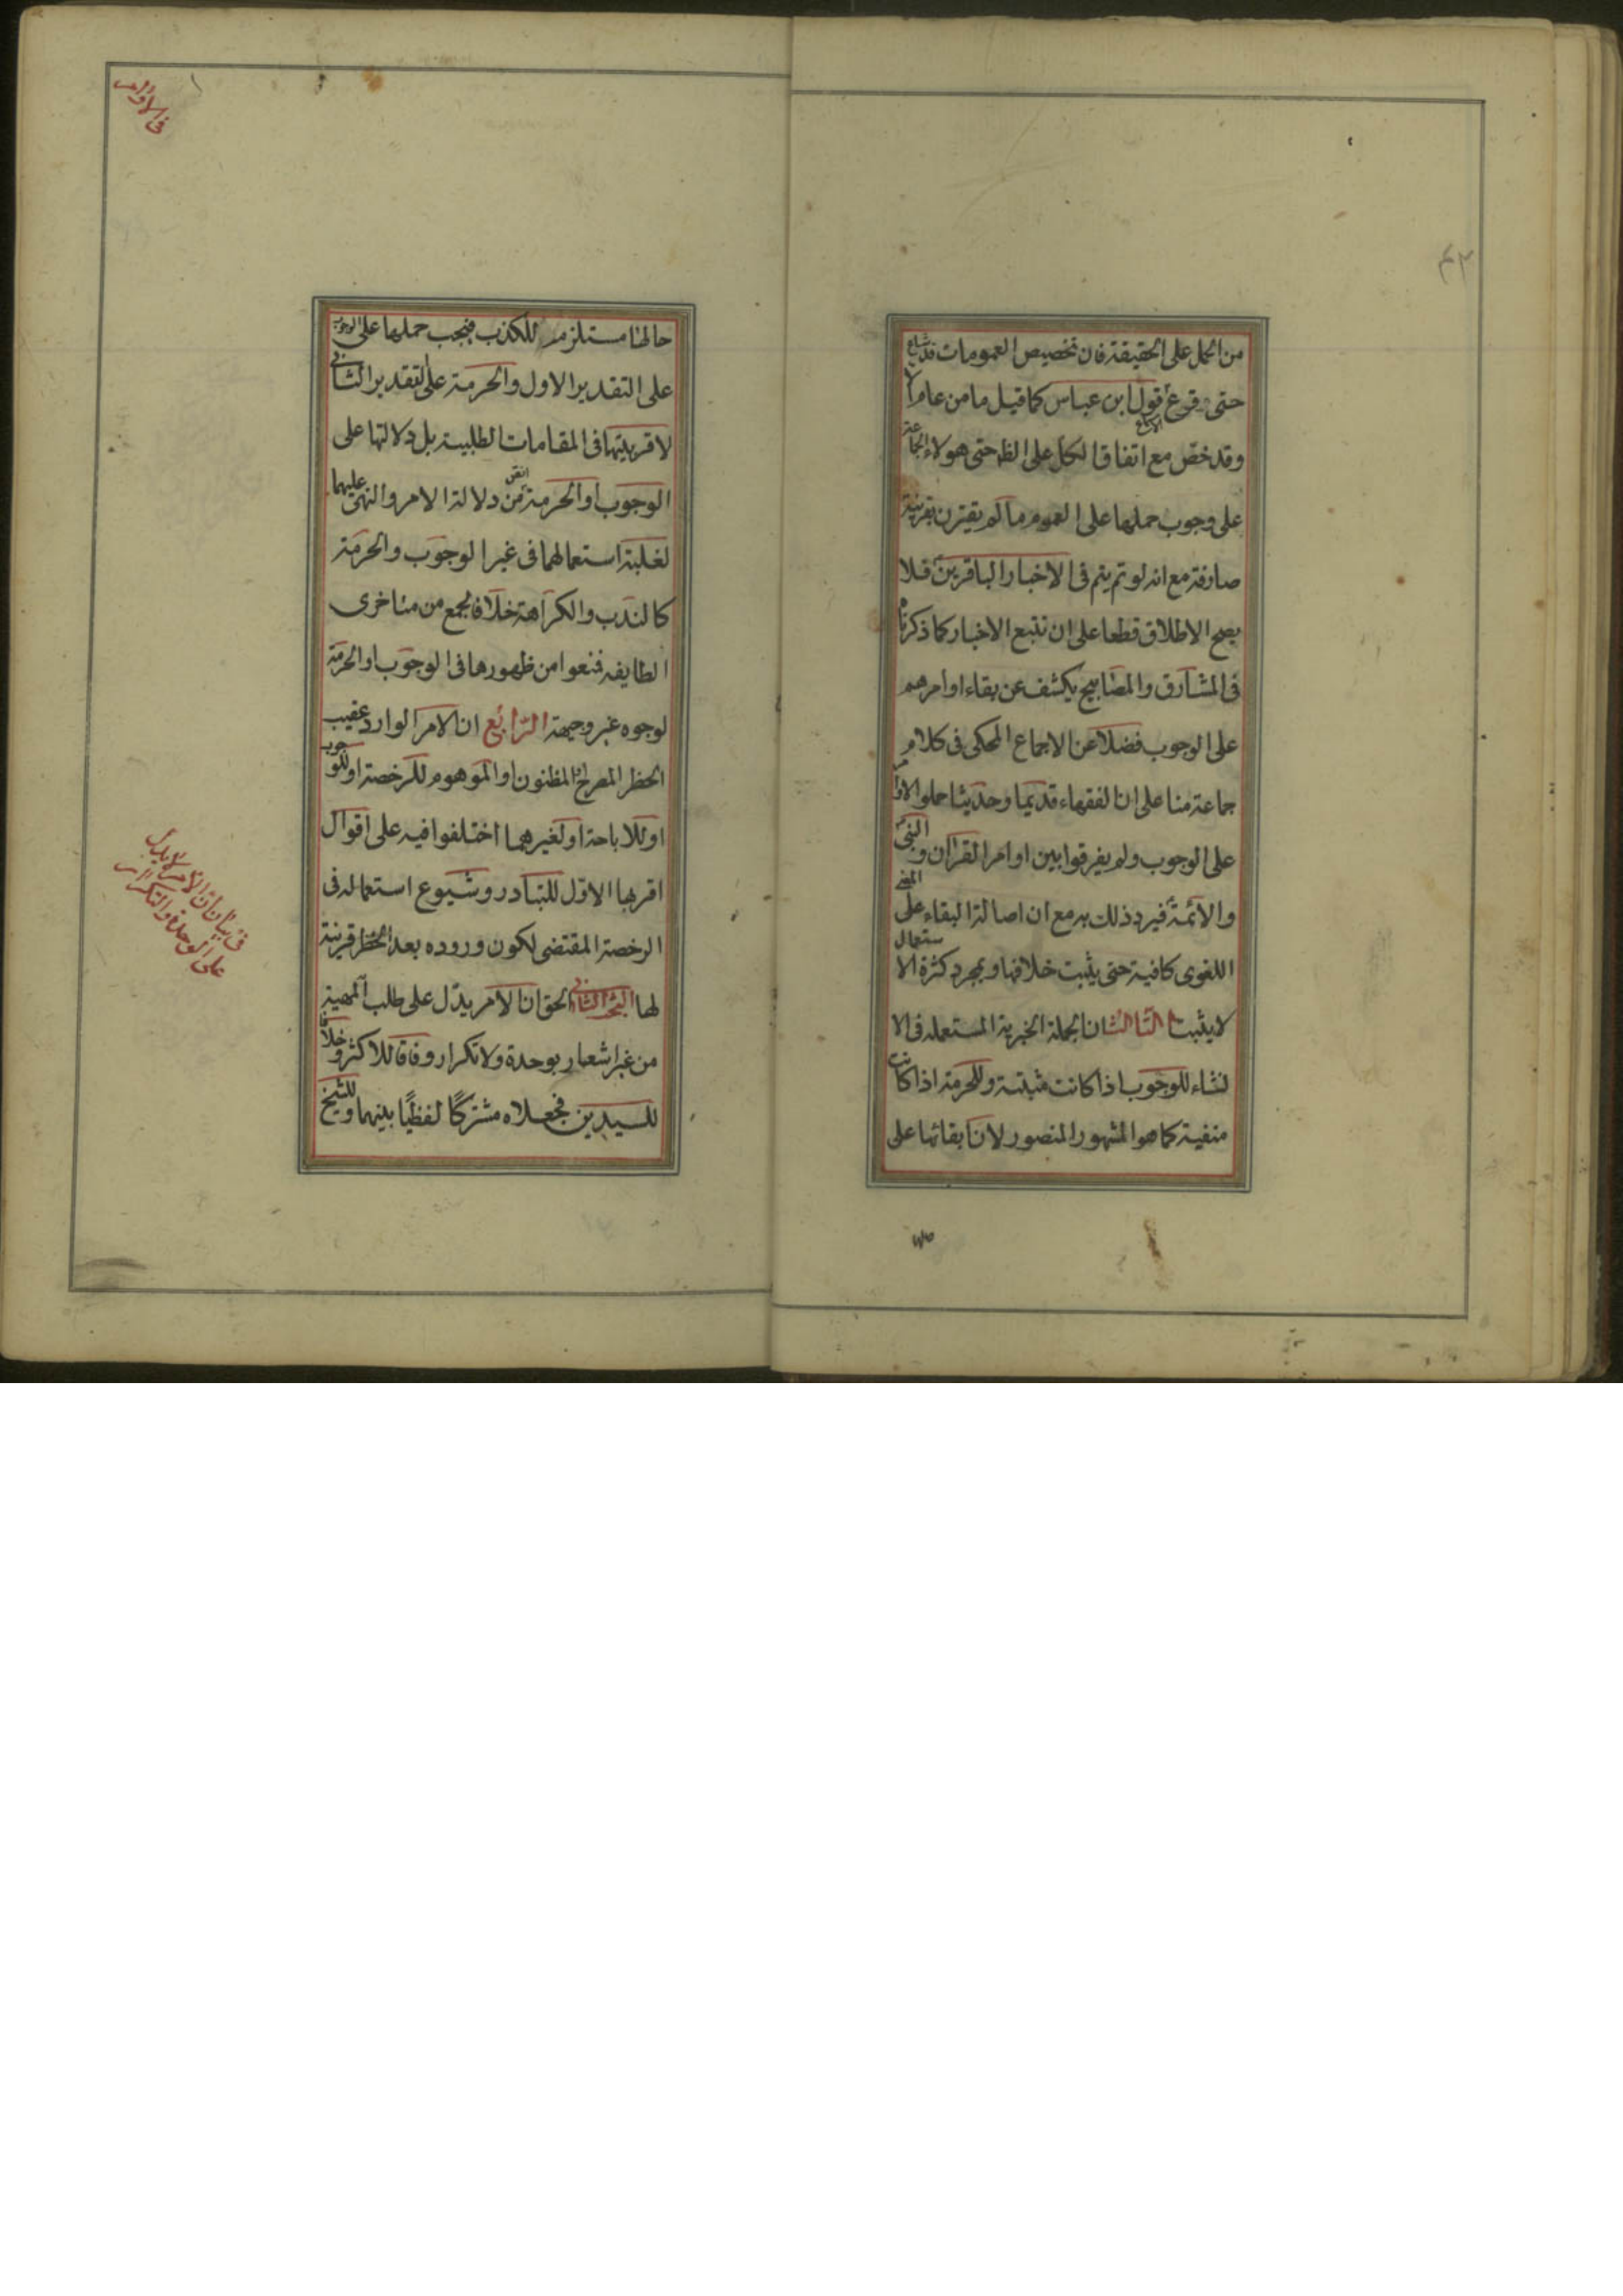 ٤٢
من الحمل على الحقيقة فان تخصيص العمومات قد شاع
حتى قرع قول ابن عباس كما قيل ما من عام الا
وقد خص مع اتفاق الكل على الظ حتى هولاء الجماعة
على وجوب حملها على العموم ما لم يقترن بقرينة
صارفة مع انه لو تم يتم في الاخبار الباقرين فلا
يصح الاطلاق قطعا على ان تتبع الاخبار كما ذكرناه
في المشارق والمصابيح يكشف عن بقاء اوامرهم
على الوجوب فضلا عن الاجماع المحكى في كلام
جماعة منا على ان الفقهاء قديما وحديثا حملوا الاوامر
على الوجوب ولم يفرقوا بين اوامر القران والنبي
والائمة فيرد ذلك به مع ان اصالة البقاء على المعنى
اللغوى كافية حتى يثبت خلافها وبمجرد كثرة الاستعمال
لا يثبت الثالث ان الجملة الخبرية المستعمله في الا
نشاء للوجوب اذا كانت مثبتة وللحرمة اذا كانت
منفية كما هو المشهور المنصور لان ابقائها على
في الاوامر
حالها مستلزم للكذب فيجب حملها على الوجوب
على التقدير الاول والحرمة على التقدير الثاني
لاقربيتها في المقامات الطلبية بل دلالتها على
الوجوب او الحرمة اتقن من دلالة الامر والنهى عليهما
لغلبة استعمالهما في غير الوجوب والحرمة
كالندب والكراهة خلافا لجمع من متاخرى
الطايفه فمنعوا من ظهورها في الوجوب او الحرمة
لوجوه غير وجيهة الرابع ان الامر الوارد عقيب
الحظر المصرح او المظنون او الموهوم للرخصة او للوجوب
او للاباحة او لغيرهما اختلفوا فيه على اقوال
اقربها الاول للتبادر وشيوع استعماله في
الرخصة المقتضى لكون وروده بعد الحظر قرينة
لها البحث الثاني الحق ان الامر يدل على طلب المهية
من غير اشعار بوحدة ولا تكرار وفاقا للاكثر وخلافا
للسيدين فجعلاه مشتركًا لفظيًا بينهما وللشيخ
في بيان ان الامر لا يدل
على الوحدة والتكرار